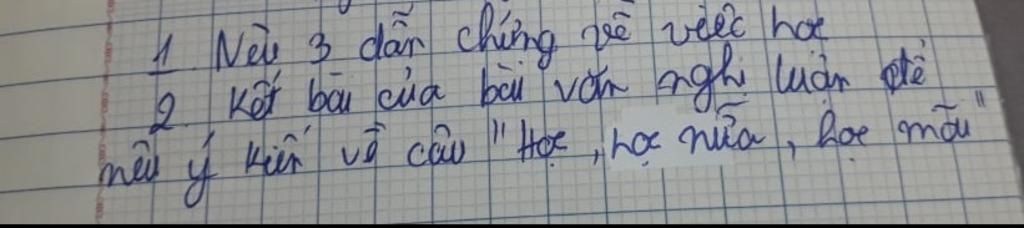 1. Nêu 3 dẫn chứng về việc học
2. Kết bài của bài văn nghị luận để
nêu ý kiến về câu "Học, học nữa, học mãi"